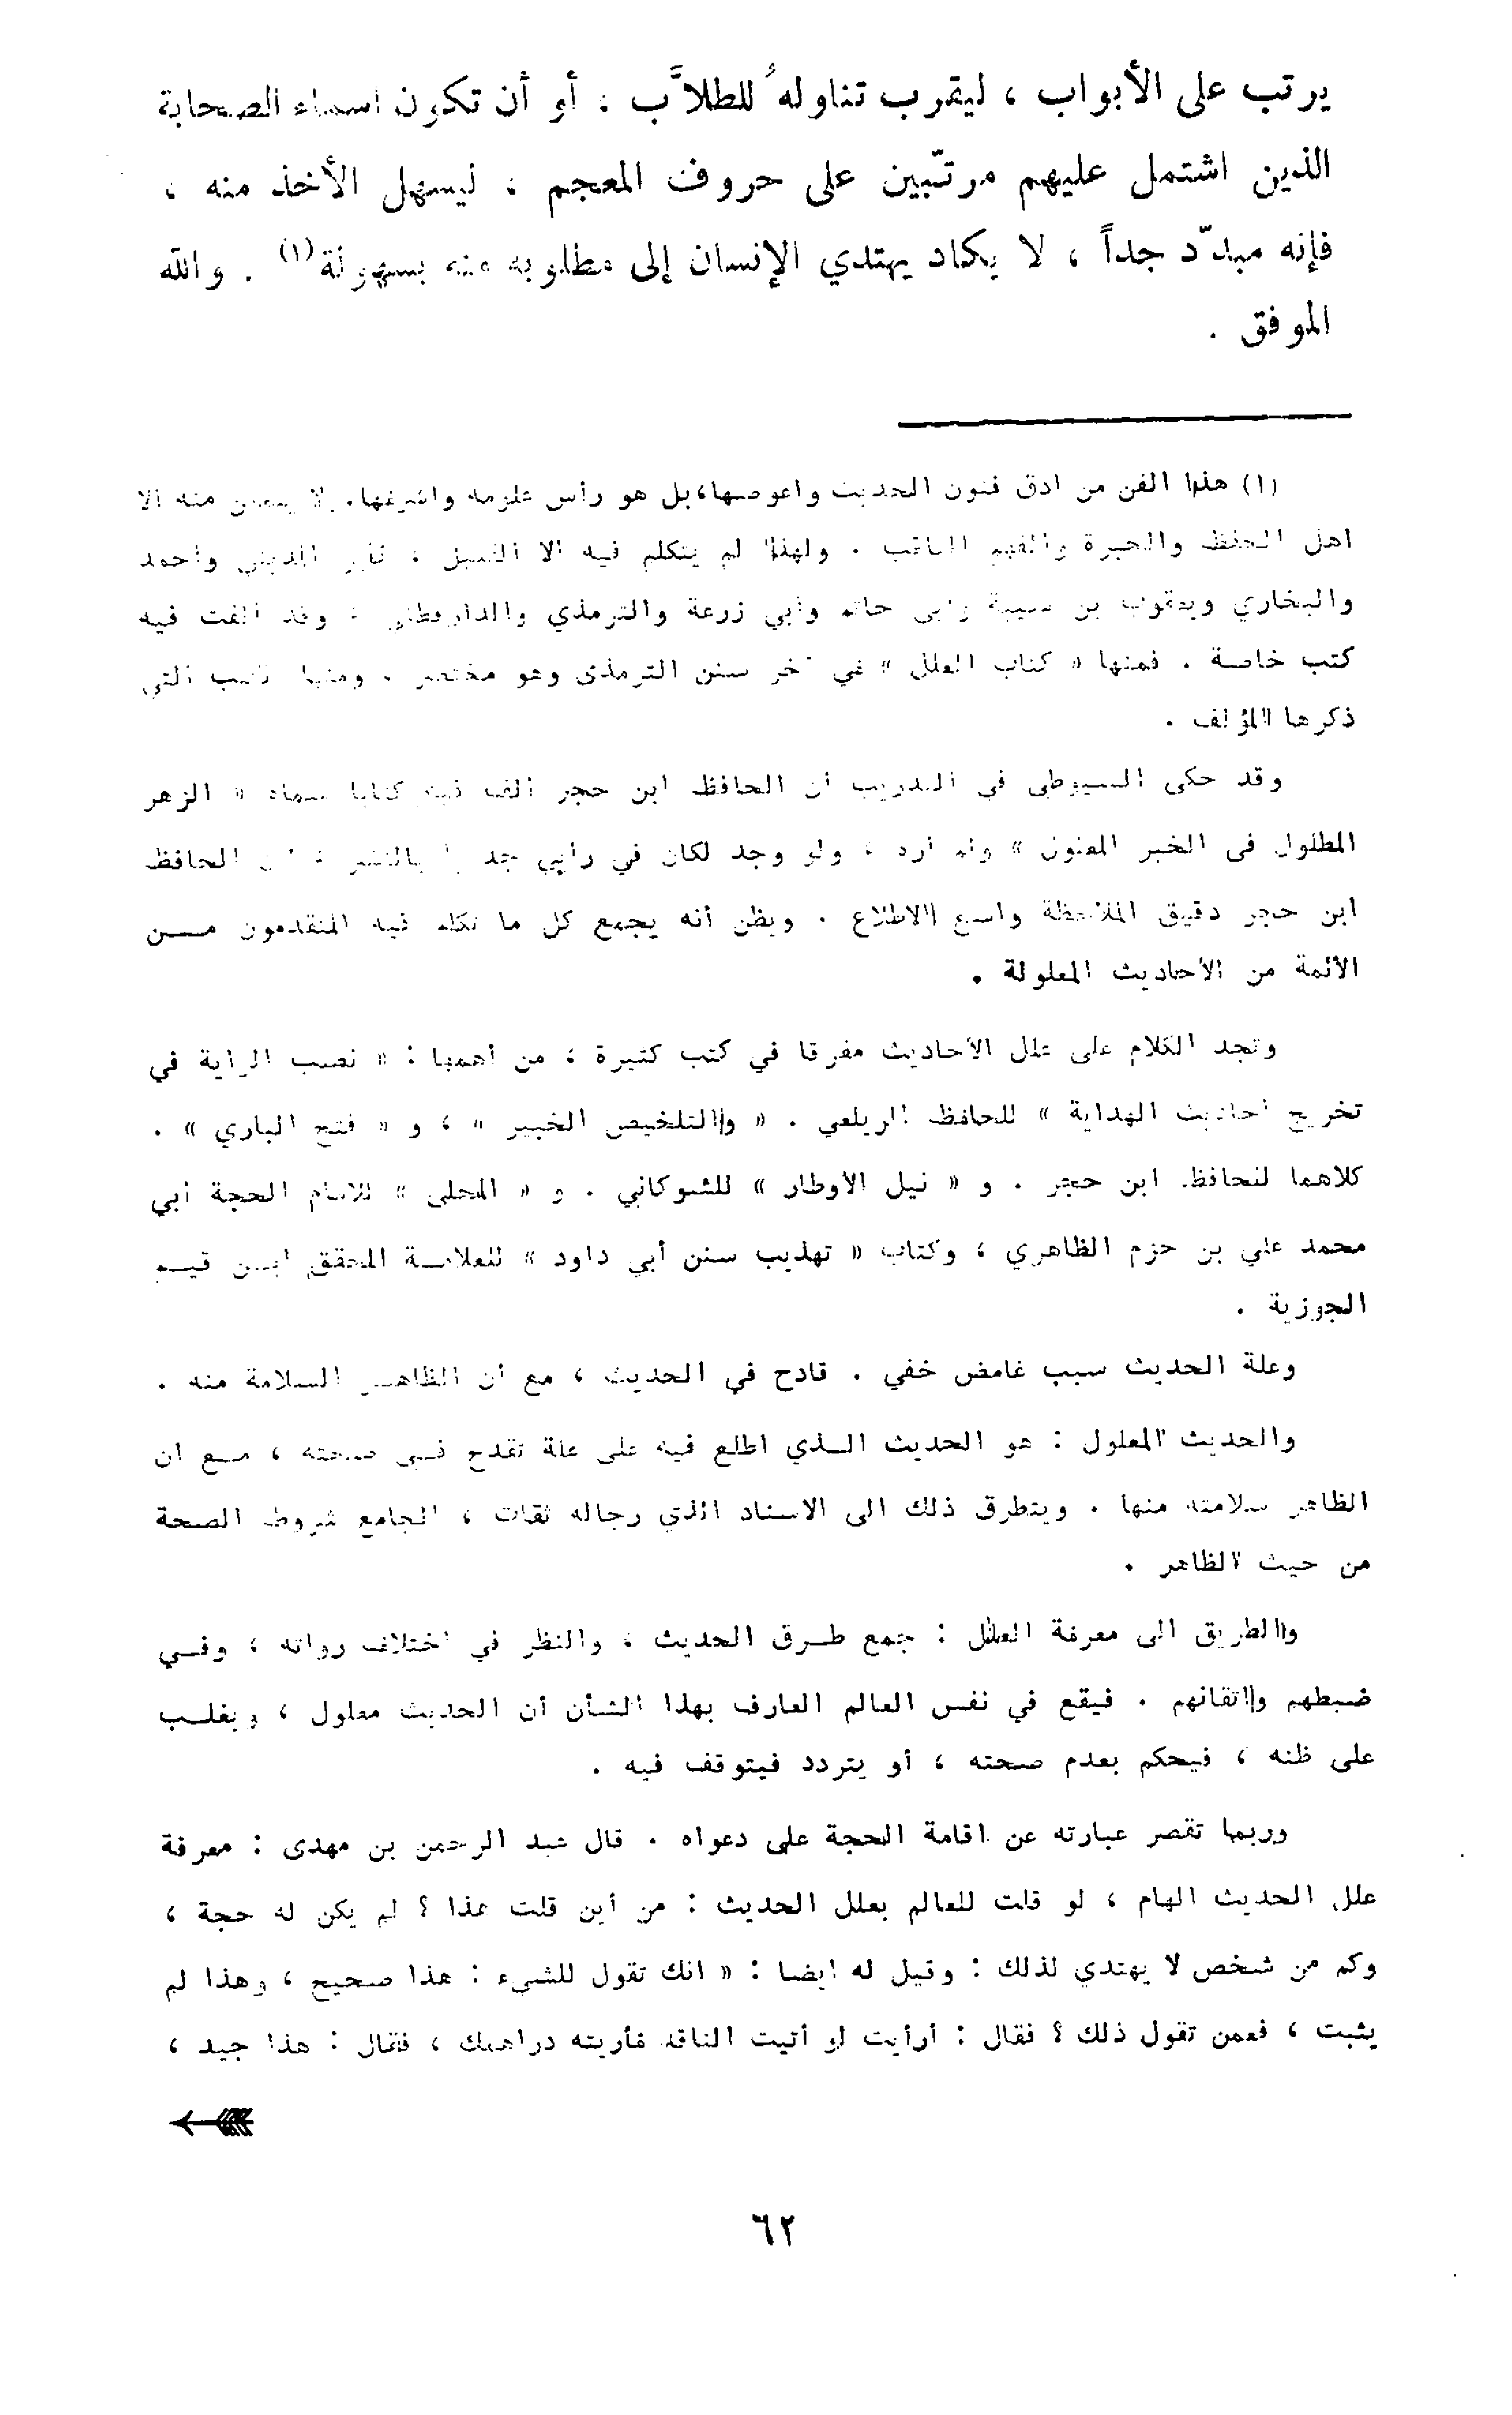 يرتب على الأبواب ، ليقرب تناولهُ للطلاَّب ، أو أن تكون اسماء الصحابة
الذين اشتمل عليهم مرتّبين على حروف المعجم ، ليسهل الأخذ منه ،
فإنه مبدّد جداً ، لا يكاد يهتدي الإنسان إلى مطلوبه منه بسهولة (١) . والله
الموفق .
(١) هذا الفن من ادق فنون الحديث واعوصها، بل هو رأس علومه واشرفها. لا يتمكن منه الا
اهل الحفظ والخبرة والفهم الثاقب . ولهذا لم يتكلم فيه الا القليل ، كابن المديني واحمد
والبخاري ويعقوب بن شيبة وابي حاتم وأبي زرعة والترمذي والدارقطني . وقد الفت فيه
كتب خاصة . فمنها « كتاب العلل » في آخر سنن الترمذى وهو مختصر . ومنها الكتب التي
ذكرها المؤلف .
وقد حكى السيوطى فى التدريب أن الحافظ ابن حجر ألف فيه كتابا سماه « الزهر
المطلول فى الخبر المعلول » ولم أره ، ولو وجد لكان في رأيي جديرا بالنشر ، لأن الحافظ
ابن حجر دقيق الملاحظة واسع الاطلاع . ويظن أنه يجمع كل ما تكلم فيه المتقدمون مــن
الأئمة من الأحاديث المعلولة .
وتجد الكلام على علل الأحاديث مفرقا في كتب كثيرة ، من أهمها : « نصب الراية في
تخريج أحاديث الهداية » للحافظ الزيلعي . « والتلخيص الحبير » ، و « فتح الباري » .
كلاهما للحافظ ابن حجر . و « نيل الأوطار » للشوكاني . و « المحلى » للامام الحجة أبي
محمد علي بن حزم الظاهري ، وكتاب « تهذيب سنن أبي داود » للعلامــة المحقق ابــن قيــم
الجوزية .
وعلة الحديث سبب غامض خفي . قادح في الحديث ، مع أن الظاهــر السلامة منه .
والحديث المعلول : هو الحديث الــذي اطلع فيه على علة تقدح فــي صحته ، مــع ان
الظاهر سلامته منها . ويتطرق ذلك الى الاسناد الذي رجاله ثقات ، الجامع شروط الصحة
من حيث الظاهر .
والطريق الى معرفة العلل : جمع طــرق الحديث ، والنظر في اختلاف رواته ، وفــي
ضبطهم واتقانهم . فيقع في نفس العالم العارف بهذا الشأن أن الحديث معلول ، ويغلــب
على ظنه ، فيحكم بعدم صحته ، أو يتردد فيتوقف فيه .
وربما تقصر عبارته عن اقامة الحجة على دعواه . قال عبد الرحمن بن مهدى : معرفة
علل الحديث الهام ، لو قلت للعالم بعلل الحديث : من أين قلت هذا ؟ لم يكن له حجة ،
وكم من شخص لا يهتدي لذلك : وقيل له ايضا : « انك تقول للشيء : هذا صحيح ، وهذا لم
يثبت ، فعمن تقول ذلك ؟ فقال : أرأيت لو أتيت الناقد فأريته دراهمك ، فقال : هذا جيد ،
٦٢